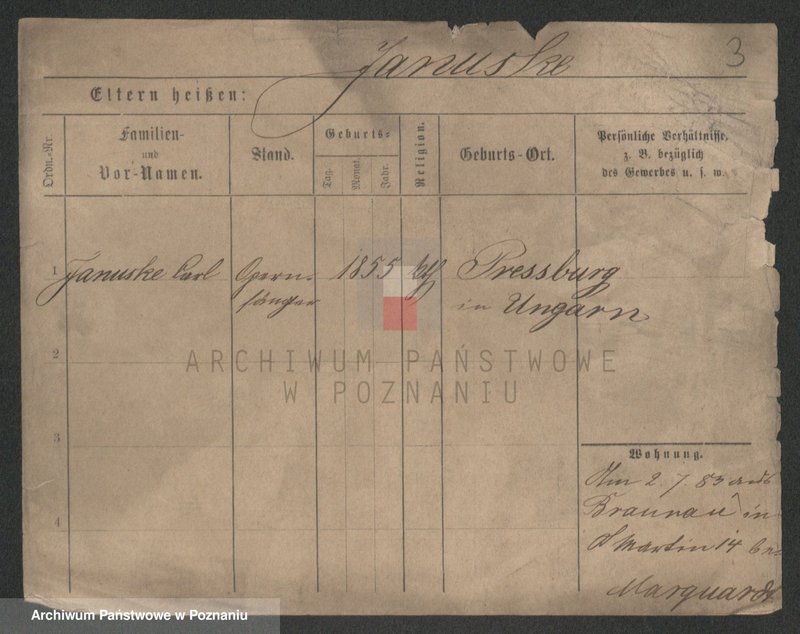 Januske
3
Eltern heißen:
Ordn.-Nr.
Familien-
und
Vor-Namen.
Stand.
Geburts-
Tag.
Monat.
Jahr.
Religion.
Geburts-Ort.
Persönliche Verhältnisse,
z. B. bezüglich
des Gewerbes u. s. w.
1
Januske Carl
Opern-
sänger
1855
Pressburg
in Ungarn
2
3
4
Wohnung.
Am 2. 7. 83 aus
Braunau in
Martin 14 bei
Marquardt
ARCHIWUM PAŃSTWOWE
W POZNANIU
Archiwum Państwowe w Poznaniu